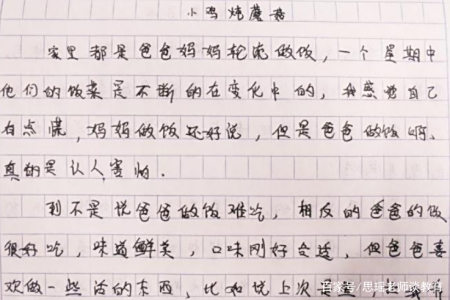 小鸡炖蘑菇
家里都是爸爸妈妈轮流做饭，一个星期中
他们的饭菜是不断的在变化中的，我感觉自己
有点慌，妈妈做饭还好说，但是爸爸做饭啊、
真的是认人害怕．
到不是说爸爸做饭难吃，相反的爸爸的饭
很好吃，味道鲜美，口味刚好合适，但爸爸喜
欢做一些活的东西，比如说上次是
百家号/思瑶老师谈教育